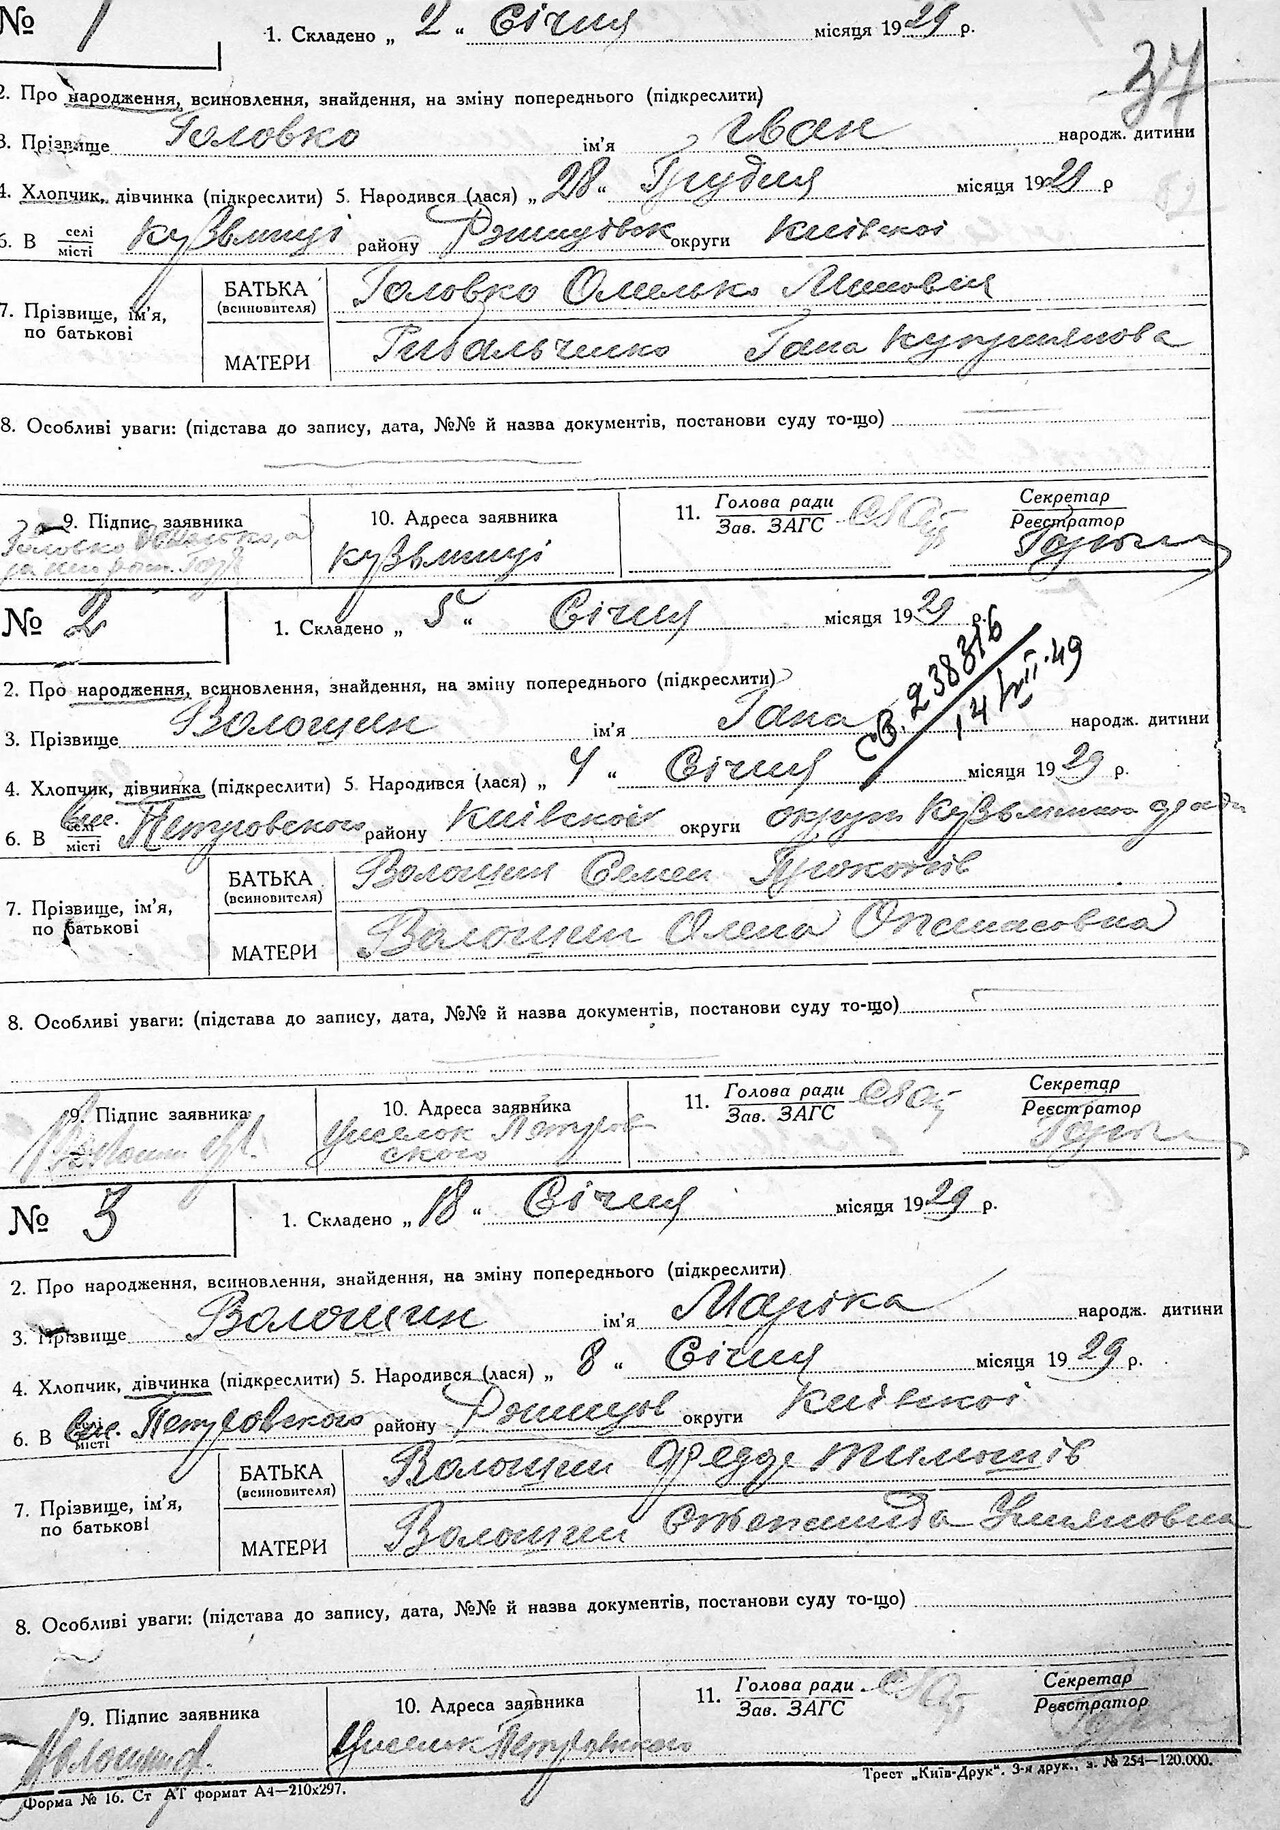 № 1 1. Складено „ 2 “ Січня місяця 1929 р.
37
2. Про народження, всиновлення, знайдення, на зміну попереднього (підкреслити)
3. Прізвище Головко ім'я Іван народж. дитини
4. Хлопчик, дівчинка (підкреслити) 5. Народився (лася) „ 28 “ Грудня місяця 19 р
6. В селі місті Кузьминці району округи Київскоі
7. Прізвище, ім'я, по батькові
БАТЬКА (всиновителя) Головко Омелько
МАТЕРИ Рибальченко Гана Куприянова
8. Особливі уваги: (підстава до запису, дата, №№ й назва документів, постанови суду то-що)
9. Підпис заявника 10. Адреса заявника 11. Голова ради Зав. ЗАГС Секретар Реєстратор
Головко
Кузьминці
№ 2 1. Складено „ 5 “ Січня місяця 1929 р.
св. 238316
14/VII.49
2. Про народження, всиновлення, знайдення, на зміну попереднього (підкреслити)
3. Прізвище Волошин ім'я Гана народж. дитини
4. Хлопчик, дівчинка (підкреслити) 5. Народився (лася) „ 4 “ Січня місяця 1929 р.
6. В селі місті Петровского району Київскоі округи
7. Прізвище, ім'я, по батькові
БАТЬКА (всиновителя) Волошин Семен Прокопів
МАТЕРИ Волошин Олена Опанасовна
8. Особливі уваги: (підстава до запису, дата, №№ й назва документів, постанови суду то-що)
9. Підпис заявника 10. Адреса заявника 11. Голова ради Зав. ЗАГС Секретар Реєстратор
Волошин
Петров
ского
№ 3 1. Складено „ 18 “ Січня місяця 1929 р.
2. Про народження, всиновлення, знайдення, на зміну попереднього (підкреслити)
3. Прізвище Волошин ім'я Маріка народж. дитини
4. Хлопчик, дівчинка (підкреслити) 5. Народився (лася) „ 8 “ Січня місяця 1929 р.
6. В селі місті Петровского району Ржищов округи Київскоі
7. Прізвище, ім'я, по батькові
БАТЬКА (всиновителя) Волошин
МАТЕРИ Волошин
8. Особливі уваги: (підстава до запису, дата, №№ й назва документів, постанови суду то-що)
9. Підпис заявника 10. Адреса заявника 11. Голова ради Зав. ЗАГС Секретар Реєстратор
Петровского
Форма № 16. Ст АТ формат А4—210х297. Трест „Київ-Друк“. 3-я друк., з. № 254—120.000.